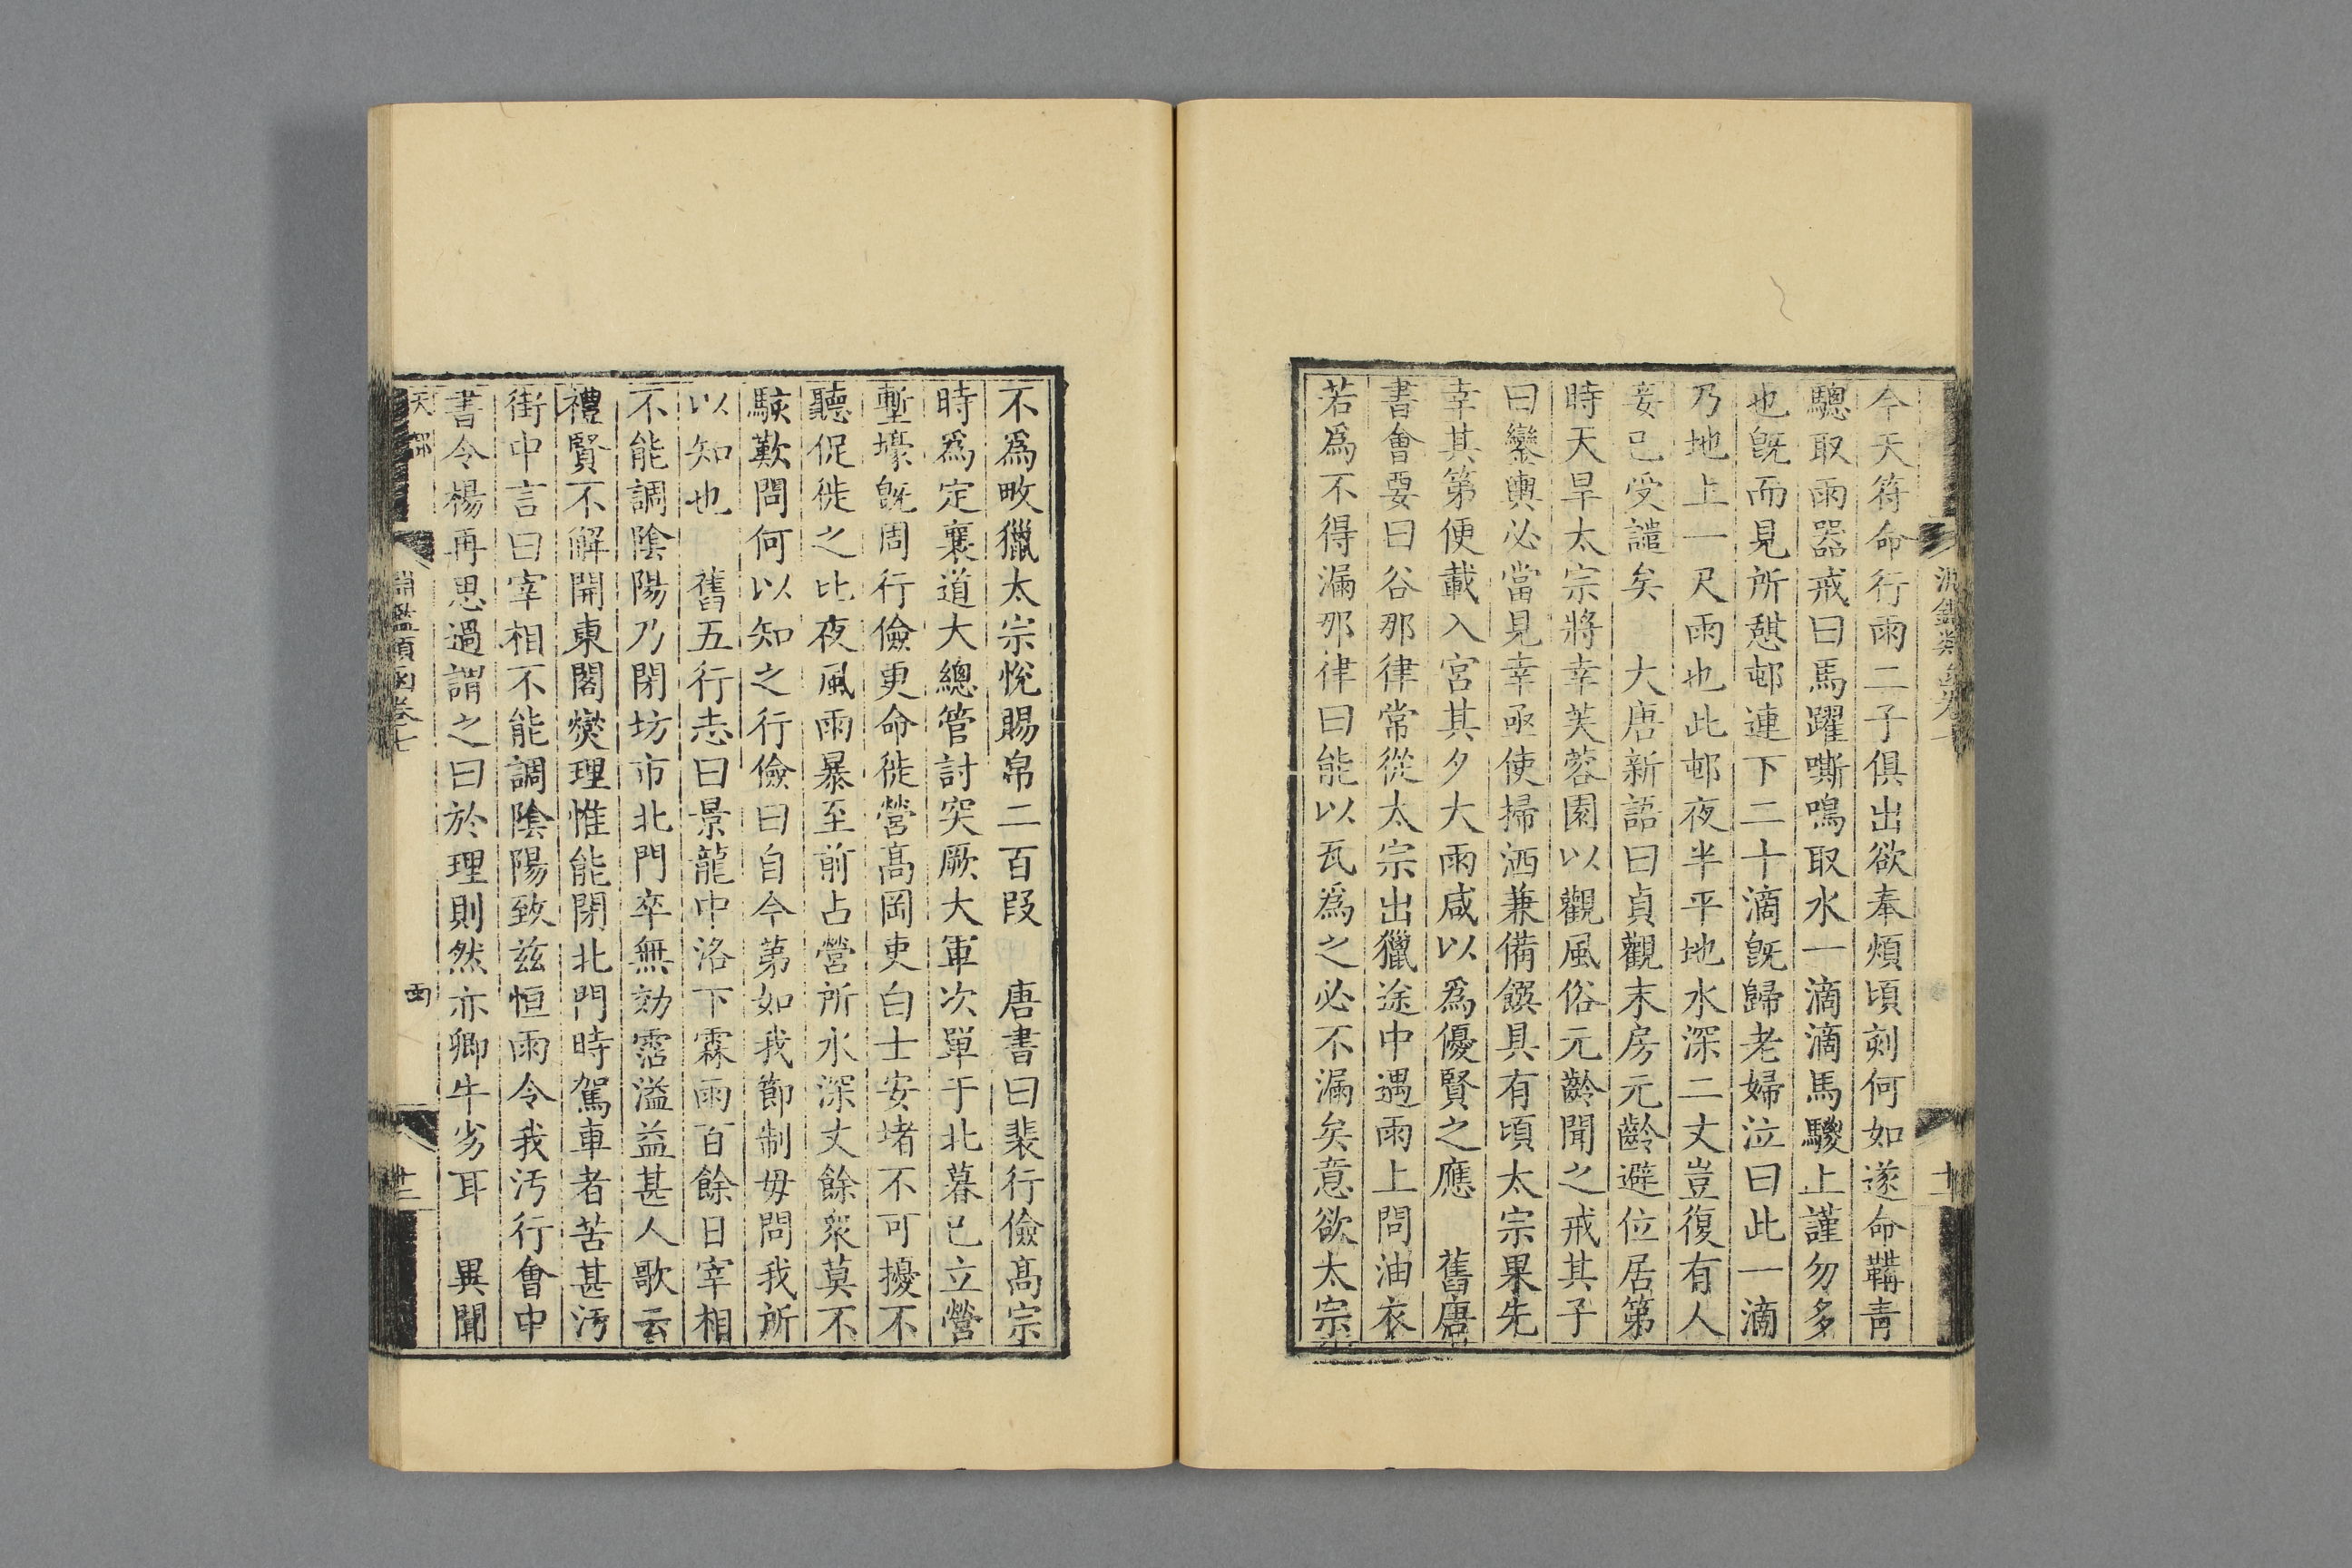 今天符命行雨二子俱出欲奉煩頃刻何如遂命鞲青
驄取雨器戒曰馬躍嘶鳴取水一滴滴馬騣上謹勿多
也旣而見所憩邨連下二十滴旣歸老婦泣曰此一滴
乃地上一尺雨也此邨夜半平地水深二丈豈復有人
妾已受譴矣　大唐新語曰貞觀末房元齡避位居第
時天旱太宗將幸芙蓉園以觀風俗元齡聞之戒其子
曰鑾輿必當見幸亟使掃洒兼備饌具有頃太宗果先
幸其第便載入宮其夕大雨咸以爲優賢之應　舊唐
書會要曰谷那律常從太宗出獵途中遇雨上問油衣
若爲不得漏那律曰能以瓦爲之必不漏矣意欲太宗
不爲畋獵太宗悅賜帛二百段　唐書曰裴行儉高宗
時爲定襄道大總管討突厥大軍次單于北暮已立營
塹壕旣周行儉更命徙營高岡吏白士安堵不可擾不
聽促徙之比夜風雨暴至前占營所水深丈餘衆莫不
駭歎問何以知之行儉曰自今第如我節制毋問我所
以知也　舊五行志曰景龍中洛下霖雨百餘日宰相
不能調陰陽乃閉坊市北門卒無効霑溢益甚人歌云
禮賢不解開東閣爕理惟能閉北門時駕車者苦甚汚
街中言曰宰相不能調陰陽致兹恒雨令我汚行會中
書令楊再思過謂之曰於理則然亦卿牛劣耳　異聞
天部　淵鑑類函卷七　雨